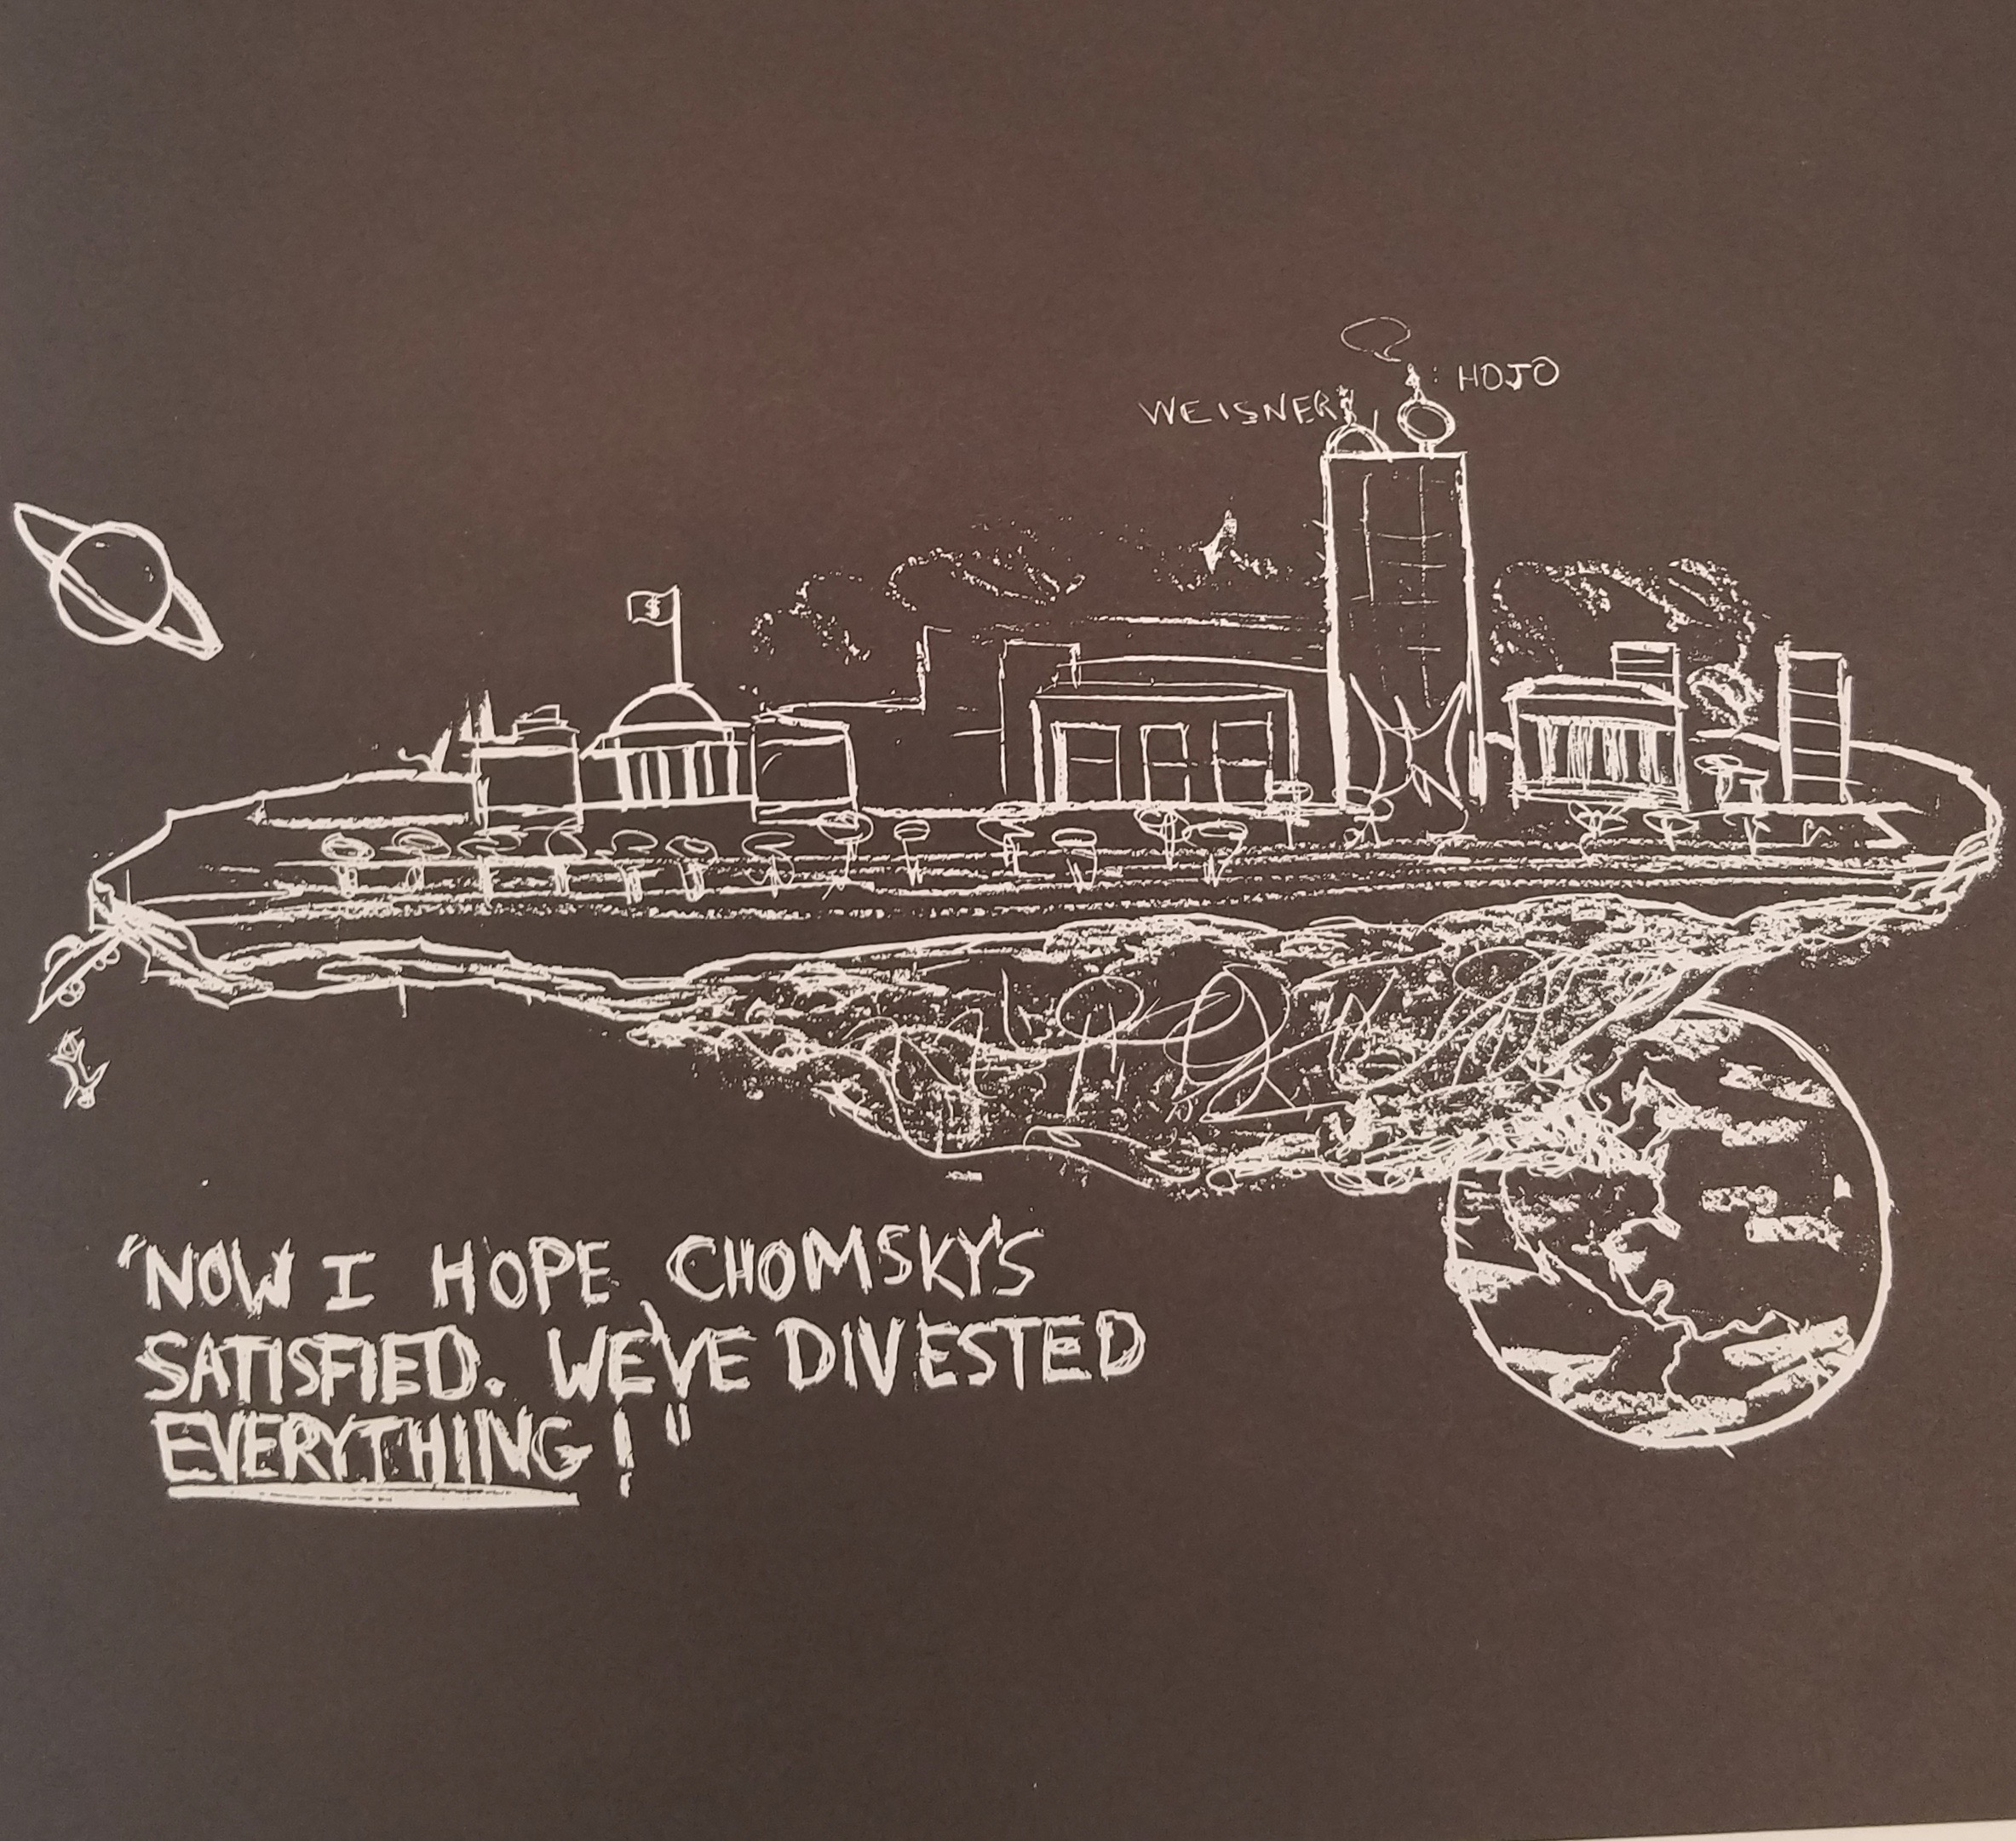 HOJO
WEISNER
$
"NOW I HOPE CHOMSKY'S
SATISFIED. WE'VE DIVESTED
EVERYTHING!"